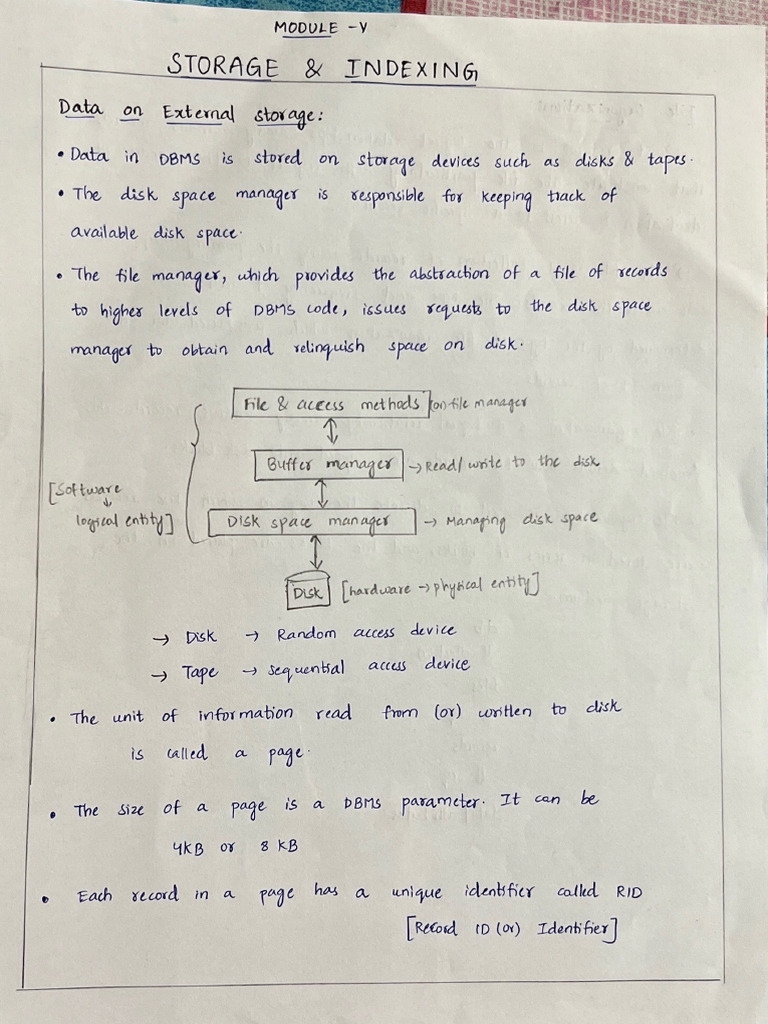 MODULE - V
STORAGE & INDEXING
Data on External storage:
• Data in DBMS is stored on storage devices such as disks & tapes.
• The disk space manager is responsible for keeping track of
available disk space.
• The file manager, which provides the abstraction of a file of records
to higher levels of DBMS code, issues requests to the disk space
manager to obtain and relinquish space on disk.
File & access methods (or) file manager
Buffer manager → Read/write to the disk
[Software
↓
logical entity]
Disk space manager → Managing disk space
Disk [hardware → physical entity]
→ Disk → Random access device
→ Tape → sequential access device
• The unit of information read from (or) written to disk
is called a page.
• The size of a page is a DBMS parameter. It can be
4KB or 8 KB
• Each record in a page has a unique identifier called RID
[Record ID (or) Identifier]